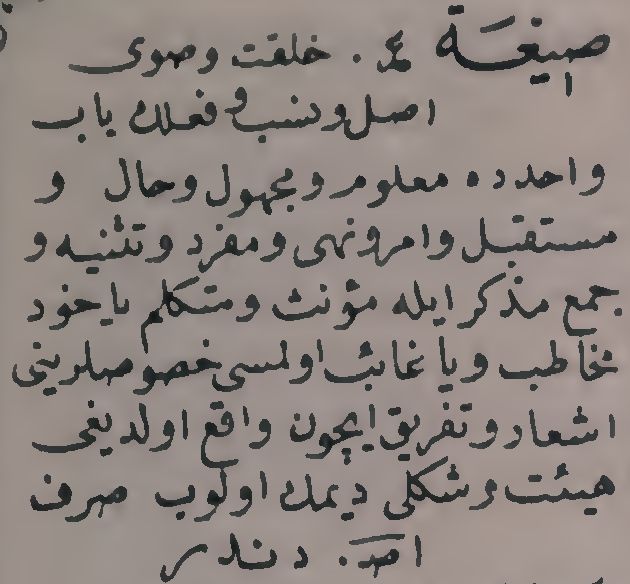 صيغة ع. خلقت وصوى
اصل ونسب و فعلك باب
واحدده معلوم ومجهول وحال و
مستقبل وامر ونهى ومفرد وتثنيه و
جمع مذكر ايله مؤنث ومتكلم ياخود
مخاطب ويا غائب اولمسى خصوصلرينى
اشعار وتفريق ايچون واقع اولديغى
هيئت وشكلى ديمك اولوب صرف
اصـ. دندر